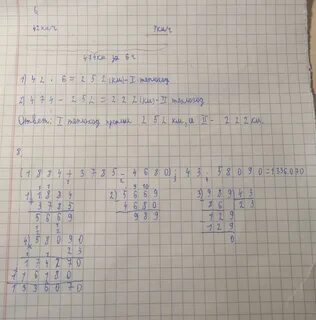 42км/ч ?км/ч
474км за 6ч
1) 42 . 6 = 252 (км) - I теплоход
2) 474 - 252 = 222 (км) - II теплоход
Ответ: I теплоход 252 км, а II - 222 км.
8.
(1884 + 3785 - 4680) : 43 . 58090 = 1336070
1) 1884
3785
5669
2) 5669
4680
989
3) 989 43
86 23
129
129
0
4) 58090
23
174270
116180
1336070